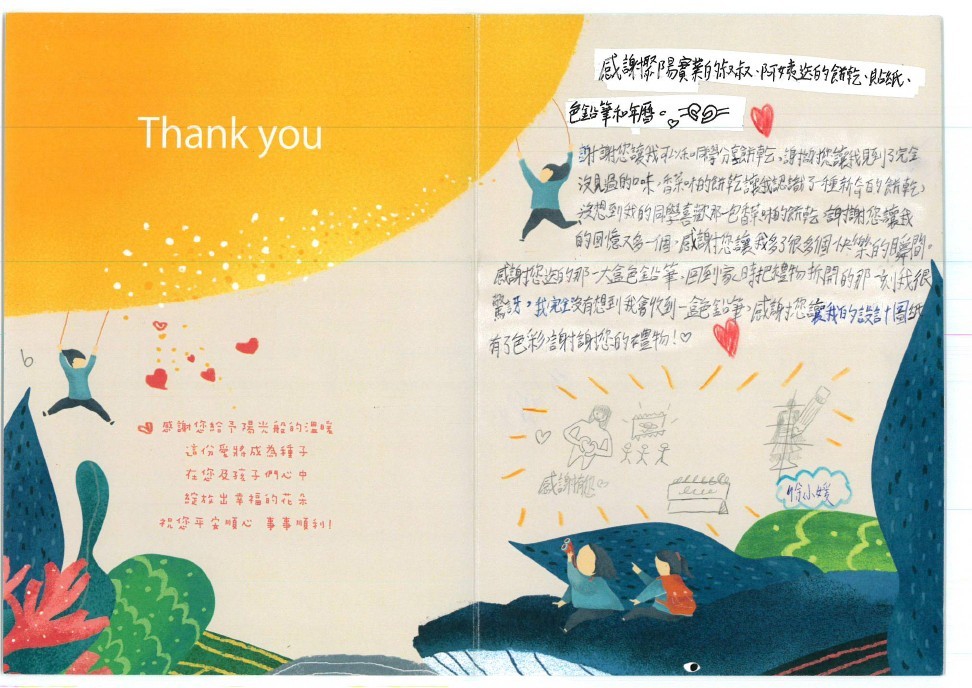 Thank you
感謝您給予陽光船的溫暖
這份愛將成為種子
在您及孩子們心中
綻放出幸福的花朵
祝您平安順心 事事順利!
6
感謝燦陽實業的叔叔、阿姨送的餅乾、貼紙、
色鉛筆和年曆。
謝謝您讓我可以和同學分享餅乾,謝謝您讓我見到了完全
沒見過的口味,香菜味的餅乾讓我認識了一種新的餅乾,
沒想到我的同學喜歡那一包香菜味的餅乾,謝謝您讓我
的回憶又多一個,感謝您讓我多了很多個快樂的瞬間。
感謝您送的那一大盒色鉛筆,回到家時把禮物拆開的那一刻我很
驚訝,我完全沒有想到我會收到一盒色鉛筆,感謝您讓我的設計圖紙
有了色彩,謝謝您的禮物!
感謝有您
徐小媛